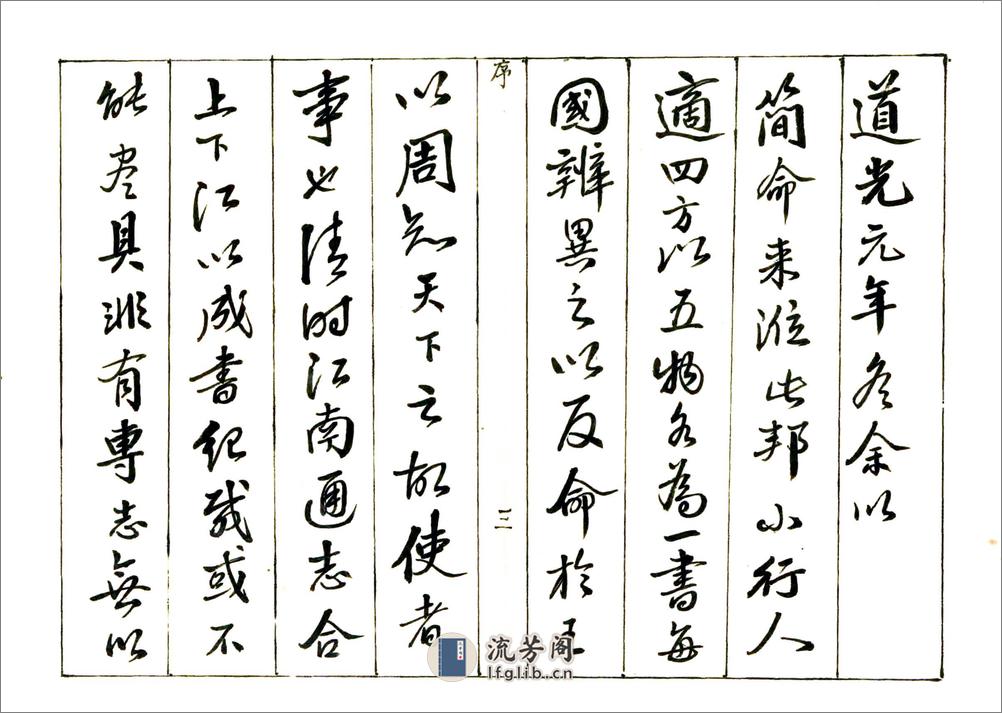 道光元年冬余以
簡命来涖此邦小行人
適四方以五物各為一書每
國辨異之以反命於王
序
三
以周知天下之故使者
事也淸时江南通志合
上下江以成書紀載或不
能尽具非有專志無以
流芳阁
lfglib.cn